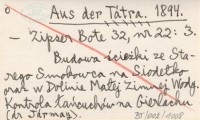 o
Aus der Tatra. 1894.
– Zipser Bote 32, nr 22: 3.
Budowa ścieżki ze Sta-
rego Smokowca na Siodełko
oraz w Dolinie Małej Zimnej Wody.
Kontrola łańcuchów na Gerlachu
(dr Jármay).